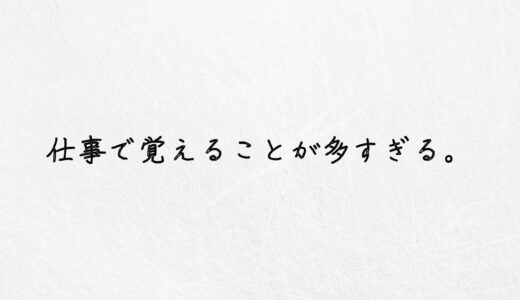 仕事で覚えることが多すぎる。